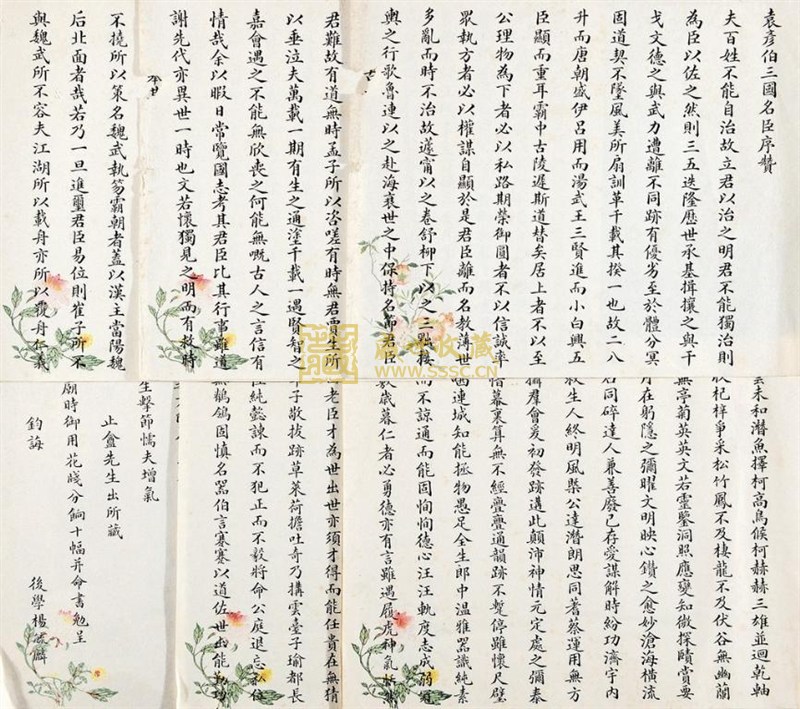 袁彦伯三國名臣序贊
夫百姓不能自治故立君以治之明君不能獨治則
為臣以佐之然則三五迭隆歷世承基揖攘之與干
戈文德之與武力遭離不同跡有優劣至於體分冥
固道契不墜風美所扇訓革千載其揆一也故二八
升而唐朝盛伊呂用而湯武王三賢進而小白興五
臣顯而重耳霸中古陵遲斯道替矣居上者不以至
公理物為下者必以私路期榮御圓者不以信誠率
眾執方者必以權謀自顯於是君臣離而名教薄世
多亂而時不治故蘧甯以之卷舒柳下以之三黜接
輿之行歌魯連以之赴海衰世之中保持名節君臣
君難故有道無時孟子所以咨嗟有時無君賈生所
以垂泣夫萬載一期有生之通塗千載一遇賢智之
嘉會遇之不能無欣喪之何能無慨古人之言信有
情哉余以暇日常覽國志考其君臣比其行事雖道
謝先代亦異世一時也文若懷獨見之明而有救時
不撓所以策名魏武執笏霸朝者蓋以漢王當陽魏
后北面者哉若乃一旦進璽君臣易位則崔子所不
與魏武所不容夫江湖所以載舟亦所以覆舟仁義
雲未和潛魚擇柯高鳥候柯赫赫三雄並迴乾軸
收杞梓爭采松竹鳳不及棲龍不及伏谷無幽蘭
無亭菊英英文若靈鑒洞照應變知微探賾賞要
月在躬隱之彌曜文明映心鑽之愈妙滄海橫流
石同碎達人兼善廢己存愛謀解時紛功濟宇內
救生人終明風槩公達潛朗思同蓍蔡運用無方
攝群會爰初發跡遘此顛沛神情元定處之彌泰
愔幕裏算無不經亹亹通韻跡不暫停雖懷尺璧
哂連城知能拯物愚足全生郎中温雅器識純素
而不諒通而能固恂恂德心汪汪軌度志成弱冠
敷歲暮仁者必勇德亦有言雖遇履虎神氣恬然
老臣才為世出世亦須才得而能任貴在無猜
子敬拔跡草萊荷擔吐奇乃搆雲臺子瑜都長
性純懿諫而不犯正而不毅將命公庭退忘私位
無鶺鴒固慎名器伯言謇謇以道佐世出能勤功
生擊節懦夫增氣
止盦先生出所藏
廟時御用花牋分餉十幅并命書勉呈
鈞誨
後學楊麟
SSSC.CN